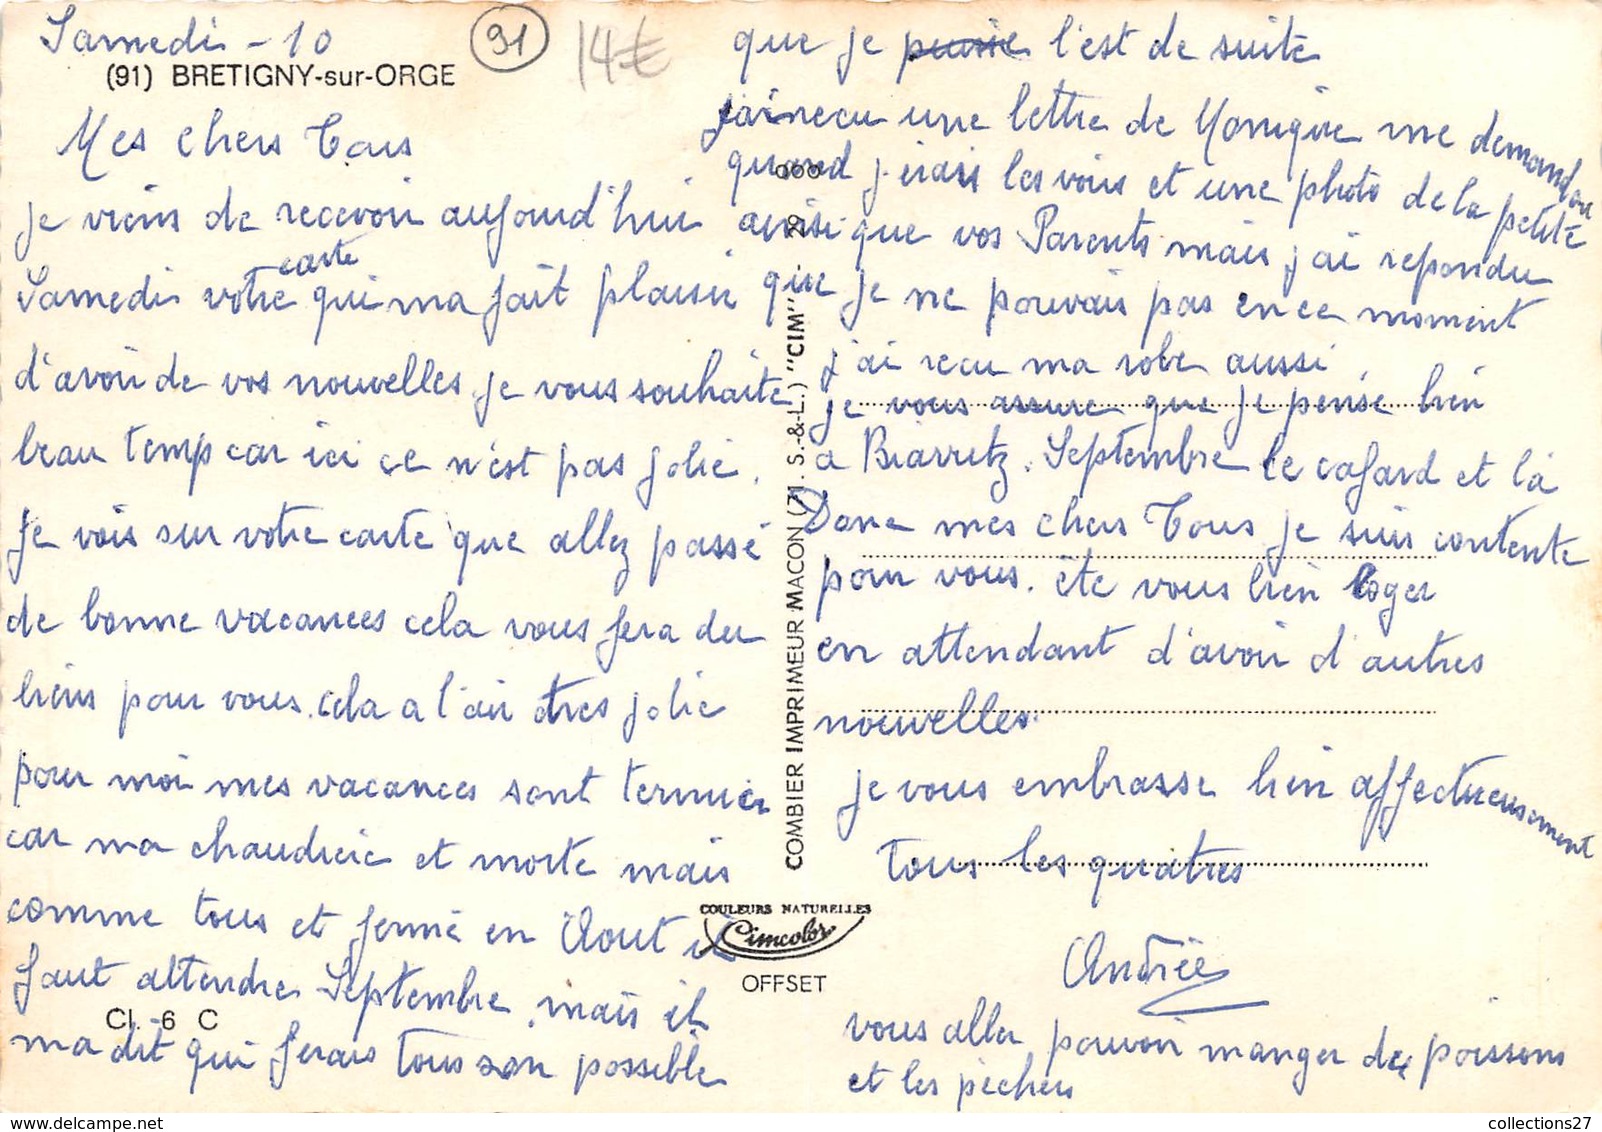 Samedi - 10
91
14€
(91) BRETIGNY-sur-ORGE
Mes chers Tous
je viens de recevoir aujourd'hui
Samedi votre carte qui ma fait plaisir
d'avoir de vos nouvelles. je vous souhaite
beau temp car ici ce n'est pas jolie.
Je vois sur votre carte que allez passé
de bonne vacances cela vous fera du
biens pour vous. cela a l'air tres jolie
pour moi mes vacances sont termier
car ma chaudieie et morte mais
comme tous et fermé en Aout il
faut attendre Septembre. mais il
ma dit qui ferais tous son possible
Cl. 6 C
que je puisse l'est de suite
j'ai recu une lettre de Monique me demandant
quand j'irais les vois et une photo de la petite
ainsi que vos Parents mais j'ai repondu
que je ne pouvais pas en ce moment
j'ai recu ma robe aussi.
je vous assure que je pense bien
a Biarritz. Septembre le cafard et là
Donc mes chers Tous je suis contente
pour vous. ête vous bien loger
en attendant d'avoir d'autres
nouvelles.
je vous embrasse bien affectueusement
Tous les quatres
Andrée
vous aller pouvoir manger des poissons
et les pecheu
COMBIER IMPRIMEUR MACON (71. S.-&-L.) "CIM"
COULEURS NATURELLES
Cimcolor
OFFSET
collections27